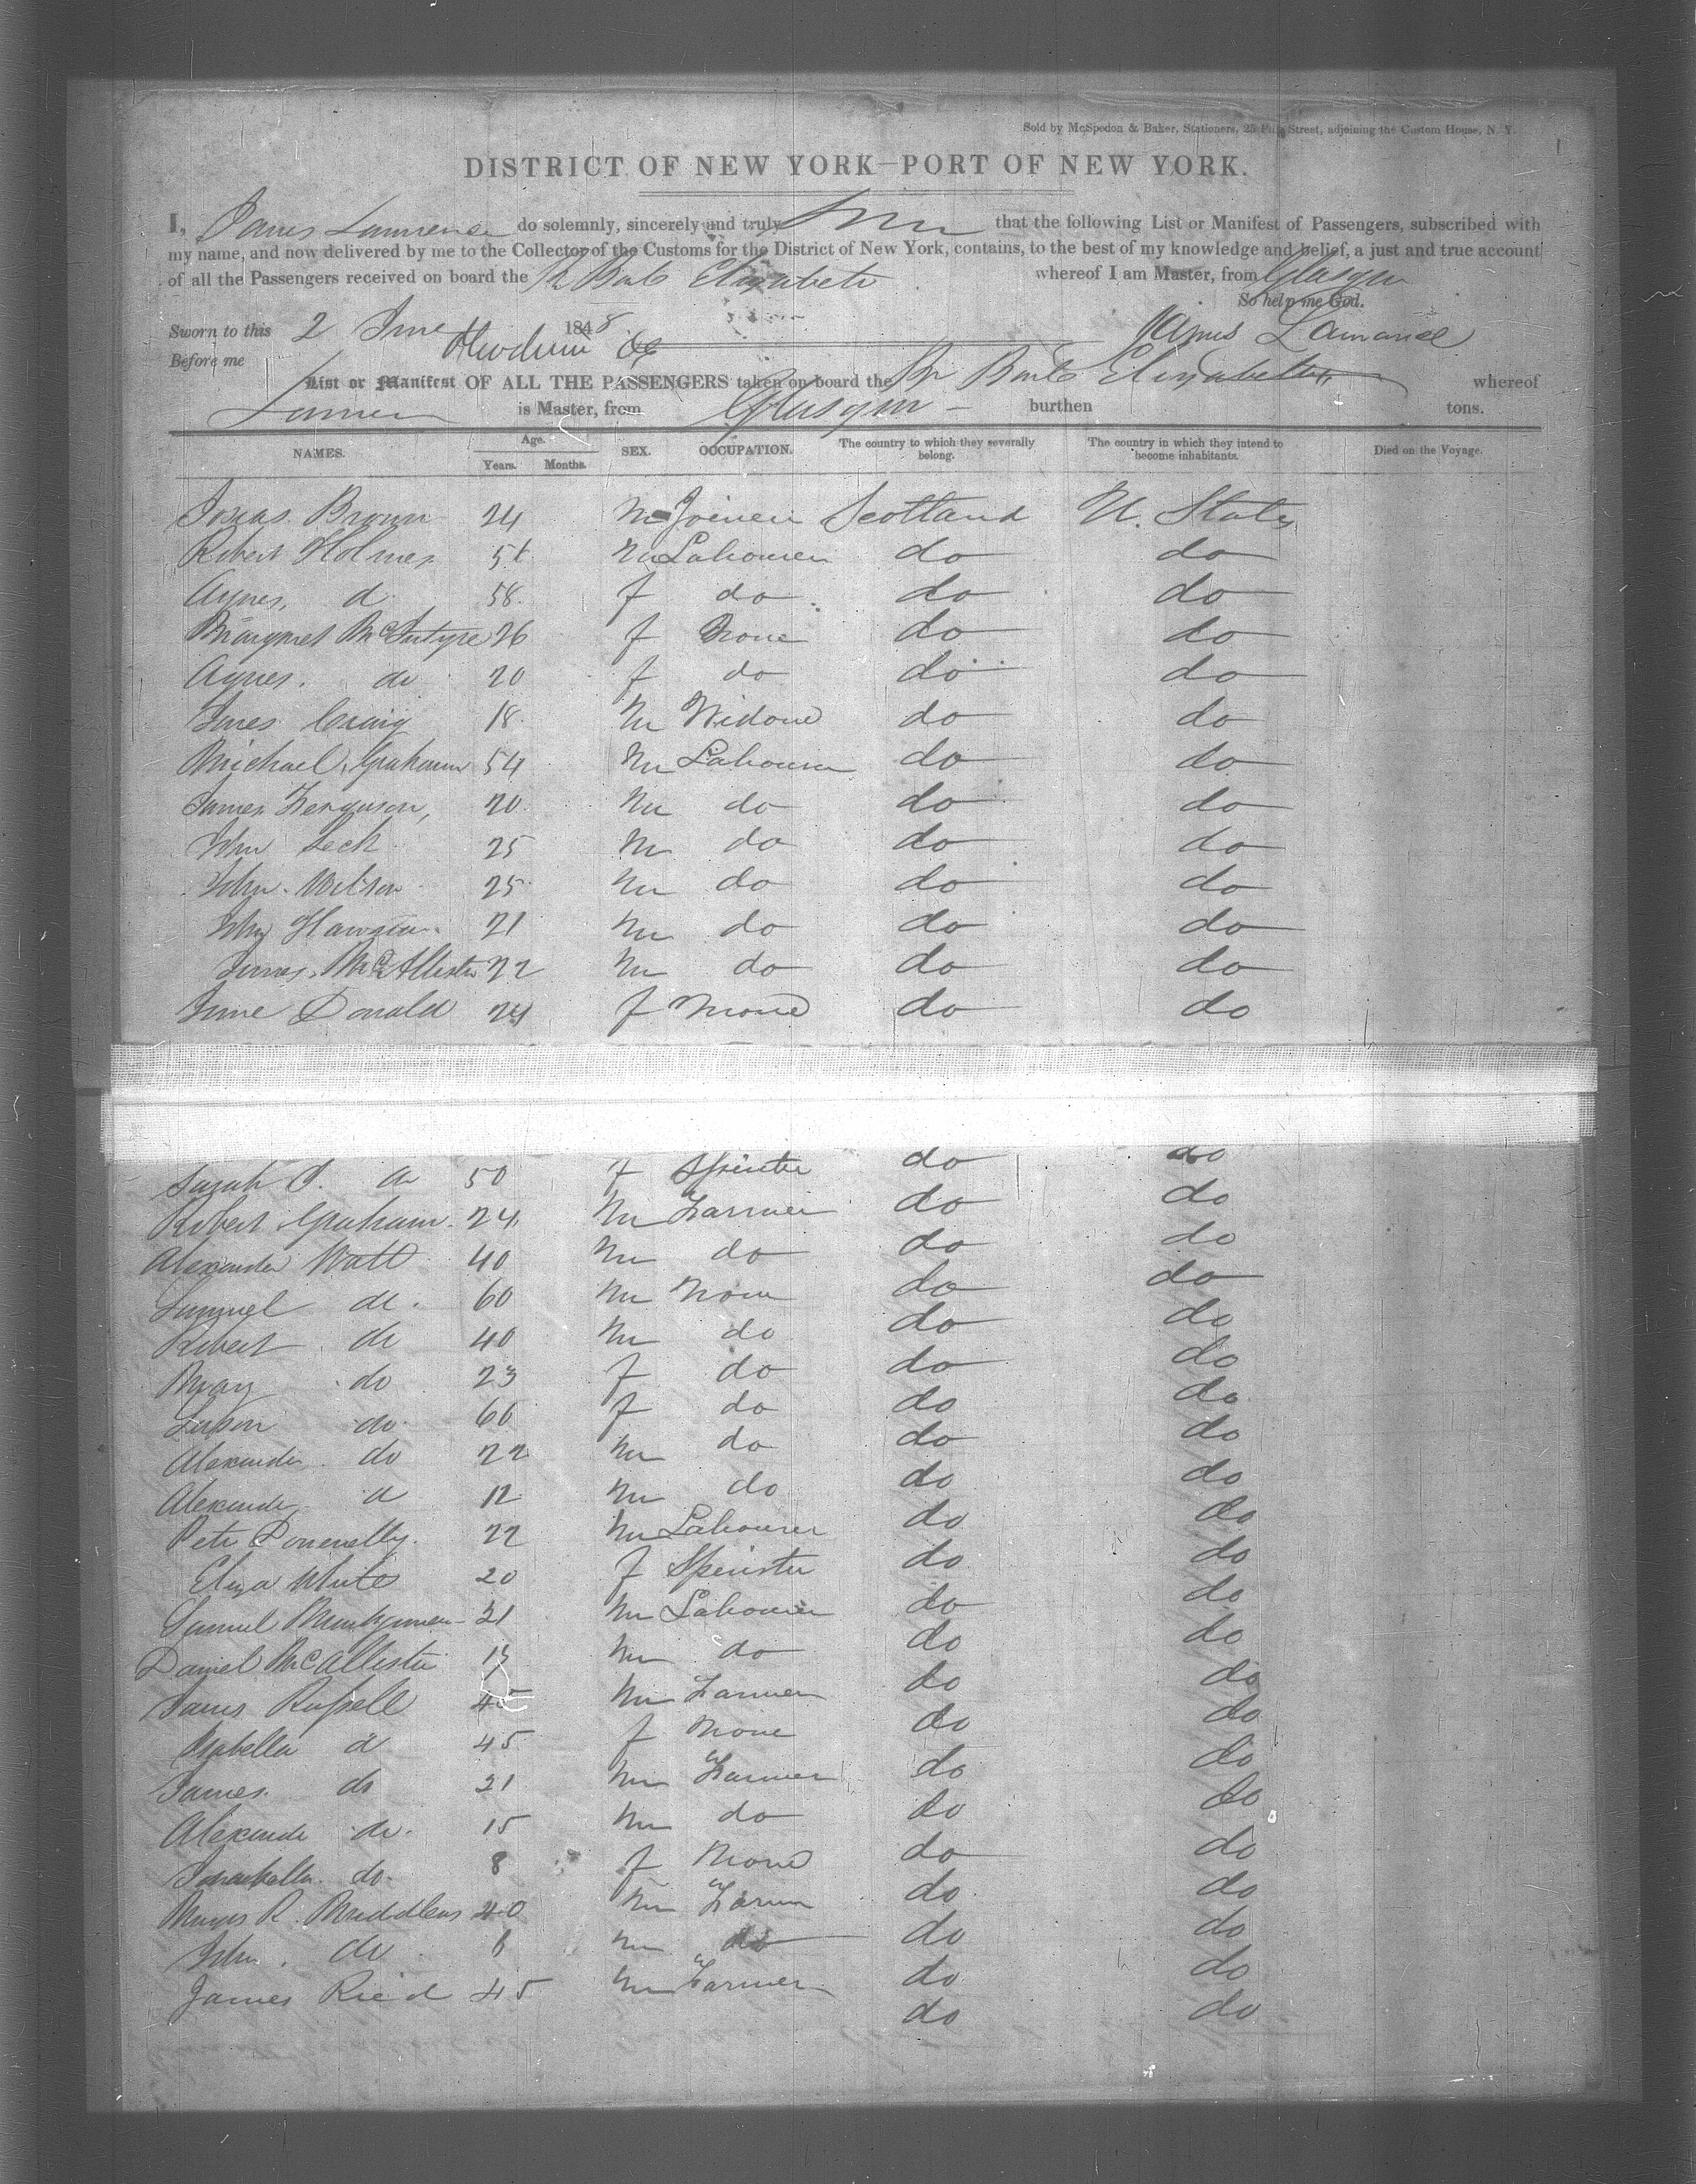 Sold by McSpedon & Baker, Stationers, 25 Pine Street, adjoining the Custom House, N. Y.
DISTRICT OF NEW YORK—PORT OF NEW YORK.
I, James Lawrence do solemnly, sincerely and truly that the following List or Manifest of Passengers, subscribed with
my name, and now delivered by me to the Collector of the Customs for the District of New York, contains, to the best of my knowledge and belief, a just and true account
of all the Passengers received on board the Br Bark Elizabeth whereof I am Master, from Glasgow
So help me God.
Sworn to this 2 June 1848 James Lawrence
Before me
List or Manifest OF ALL THE PASSENGERS taken on board the Br Bark Elizabeth whereof
is Master, from Glasgow — burthen tons.
NAMES. Age. Years. Months. SEX. OCCUPATION. The country to which they severally belong. The country in which they intend to become inhabitants. Died on the Voyage.
Brown 24 M Joiner Scotland U. States
Robert Holmes M Labourer do do
Agnes do 58 f do do do
Margaret McIntyre 26 f None do do
Agnes do 20 f do do do
Craig 18 M do do
Michael Graham 54 M Labourer do do
James Ferguson, 20 M do do do
Wm Leck 25 M do do do
John Wilson 25 M do do do
John 21 M do do do
James McAllister 22 M do do do
Jane Donald 24 f None do do
Sarah J. do 50 f Spinster do do
Robert Graham 24 M Farmer do do
Alexander Watt 40 M do do do
Samuel do 60 M None do do
Robert do 40 M do do do
Mary do 23 f do do do
do 66 f do do do
Alexander do 22 M do do do
Alexander do 12 M do do do
Peter Donnelly 22 M Labourer do do
Eliza White 20 f Spinster do do
Samuel 21 M Labourer do do
Daniel McAllister M do do do
James Russell 45 M Farmer do do
Isabella do 45 f None do do
James do 21 M Farmer do do
Alexander do 15 M do do do
do 8 f None do do
R. 40 M Farmer do do
John do 6 M do do do
James Ried 45 M Farmer do do
do do